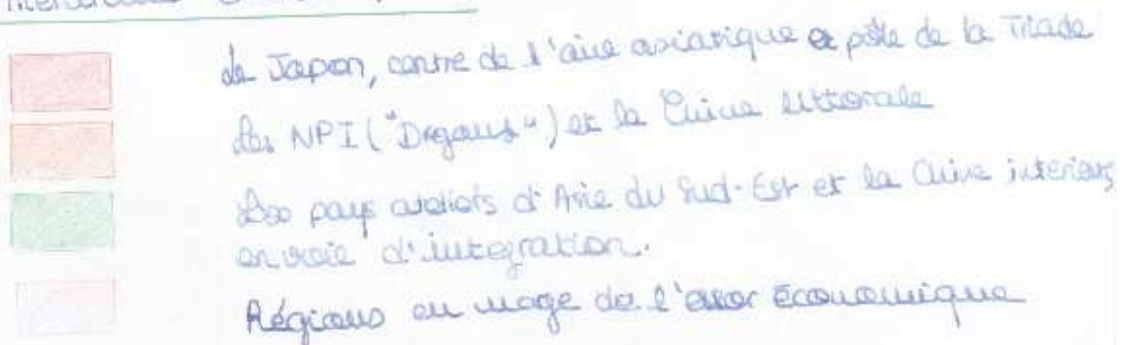 Le Japon, centre de l'aire asiatique et pôle de la Triade
Les NPI ("Dragons") et la Chine littorale
Les pays ateliers d'Asie du Sud-Est et la Chine intérieure
en voie d'intégration.
Régions en marge de l'essor économique